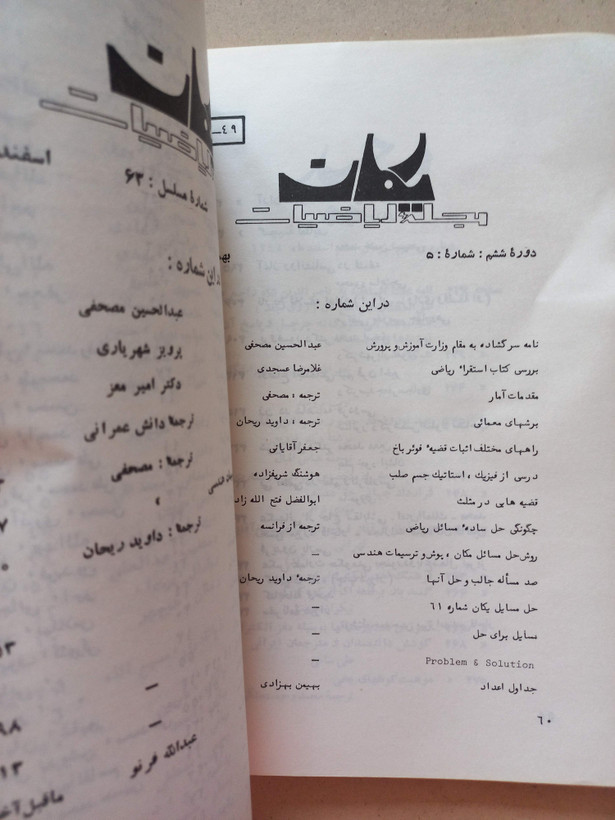 یکان
مجلهٔ ریاضیات
دورهٔ ششم : شمارهٔ : ۵
دراین شماره :
نامه سرگشاده به مقام وزارت آموزش و پرورش عبدالحسین مصحفی
بررسی کتاب استقراء ریاضی غلامرضا عسجدی
مقدمات آمار ترجمه : مصحفی
برشهای معمائی ترجمه : داوید ریحان
راههای مختلف اثبات قضیهٔ فوئر باخ جعفر آقایانی
درسی از فیزیك ، استاتیك جسم صلب هوشنگ شریفزاده
قضیه هایی در مثلث ابوالفضل فتح الله زاد
چگونگی حل سادهٔ مسائل ریاضی ترجمه از فرانسه
روش حل مسائل مکان ، پوش و ترسیمات هندسی —
صد مسأله جالب و حل آنها ترجمهٔ داوید ریحان
حل مسایل یکان شماره ۶۱ —
مسایل برای حل —
Problem & Solution —
جداول اعداد بهیمن بهزادی
۶۰
ـ۴۹
اسفند
شمارهٔ مسلسل : ۶۳
در این شماره :
عبدالحسین مصحفی
پرویز شهریاری
دکتر امیر معز
ترجمهٔ دانش عمرانی
ترجمه : مصحفی
»
ترجمه : داوید ریحان
—
—
عبدالله فرنو